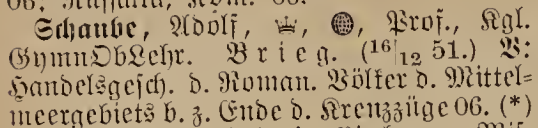 Schaube, Adolf, ♕, 🌐, Prof., Kgl.
GymnObLehr. Brieg. (16/12 51.) V:
Handelsgesch. d. Roman. Völker d. Mittel=
meergebiets b. z. Ende d. Kreuzzüge 06. (*)